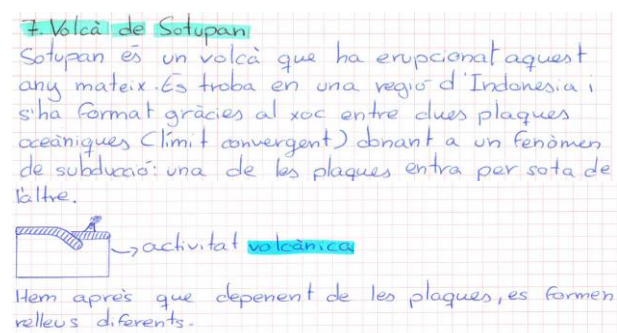 7. Volcà de Sotupan
Sotupan és un volcà que ha erupcionat aquest
any mateix. Es troba en una regió d'Indonesia i
s'ha format gràcies al xoc entre dues plaques
oceàniques (límit convergent) donant a un fenòmen
de subducció: una de les plaques entra per sota de
l'altre.
→ activitat volcànica
Hem après que depenent de les plaques, es formen
relleus diferents.